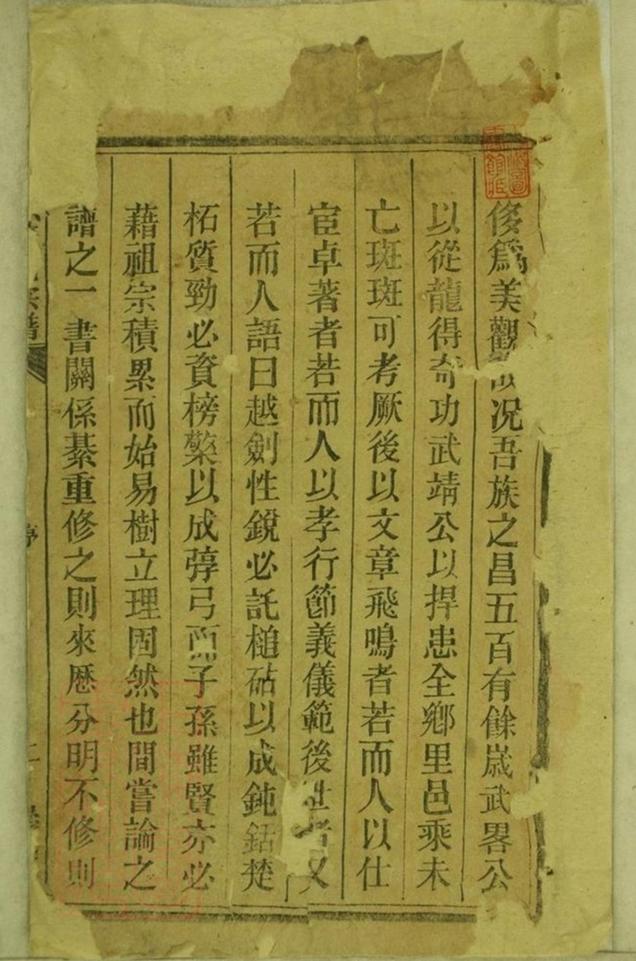 侈爲美觀況吾族之昌五百有餘歲武畧公
以從龍得奇功武靖公以捍患全鄉里邑乘未
亡斑斑可考厥後以文章飛鳴者若而人以仕
宦卓著者若而人以孝行節義儀範後世者又
若而人語曰越劍性銳必託槌砧以成鈍銛楚
柘質勁必資榜檠以成弴弓而子孫雖賢亦必
藉祖宗積累而始易樹立理固然也間嘗論之
譜之一書關係綦重修之則來歷分明不修則
譜
序
二